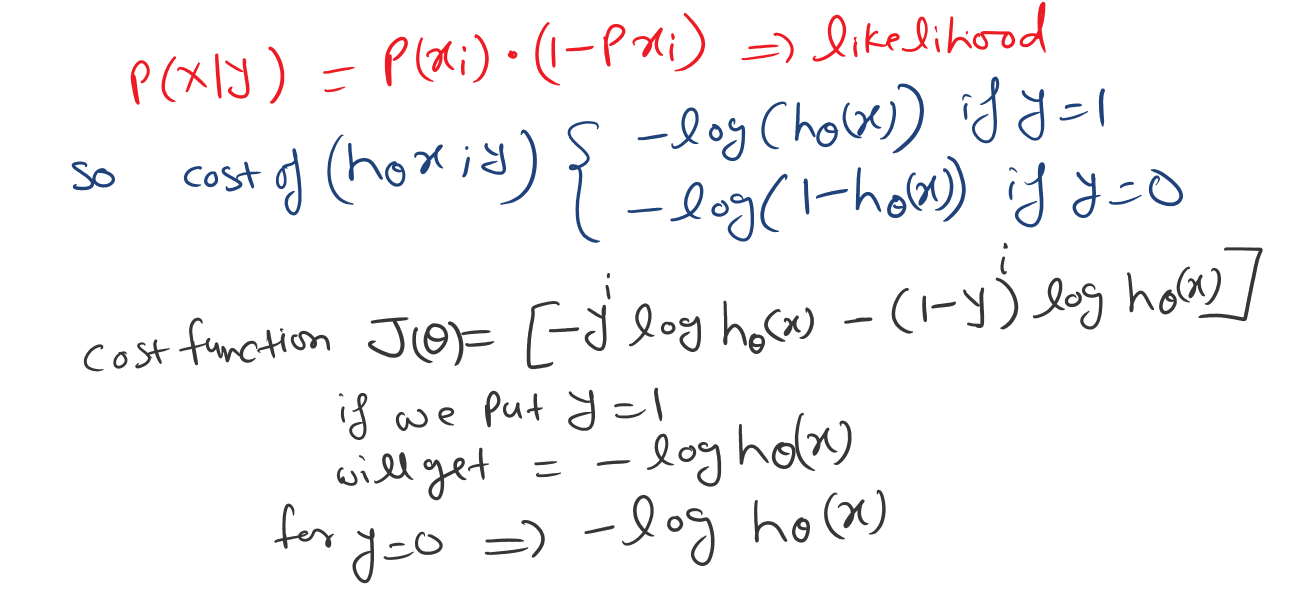 P(x|y) = P(xi) · (1-Pxi) => likelihood
so cost of (hθx; y) { -log(hθ(x)) if y=1
-log(1-hθ(x)) if y=0
cost function J(θ)= [-yⁱ log hθ(x) - (1-y)ⁱ log hθ(x)]
if we put y=1
will get = - log hθ(x)
for y=0 => -log hθ(x)